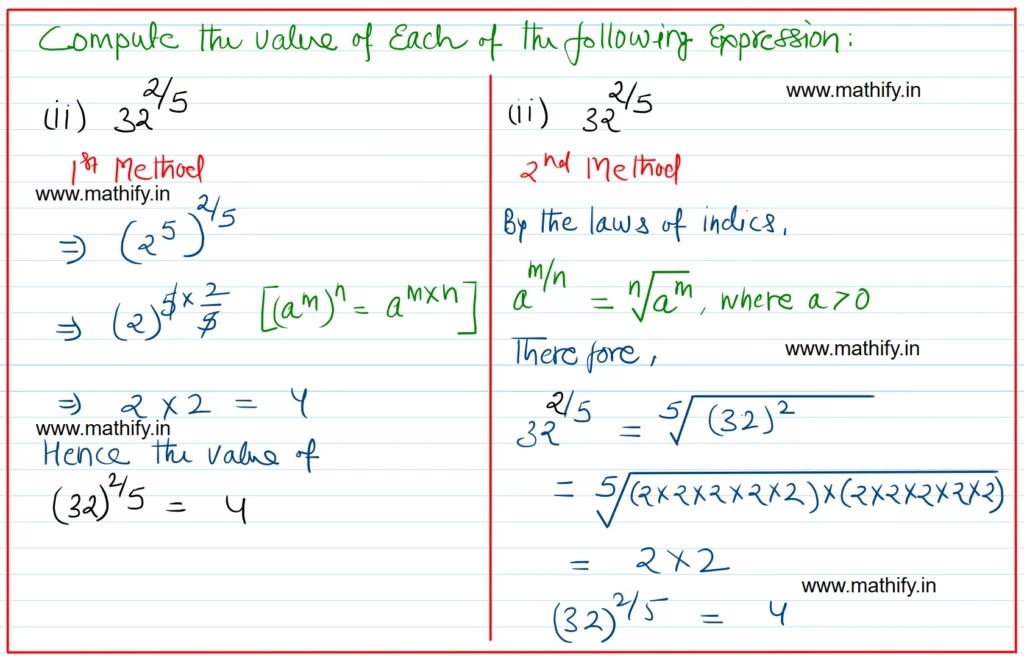 Compute the value of Each of the following Expression:
(ii) 32^{2/5}
1st Method
www.mathify.in
⇒ (2^5)^{2/5}
⇒ (2)^{5 × 2/5} [(a^m)^n = a^{m×n}]
⇒ 2 × 2 = 4
www.mathify.in
Hence the value of
(32)^{2/5} = 4
(ii) 32^{2/5}
www.mathify.in
2nd Method
By the laws of indics,
a^{m/n} = ⁿ√a^m, where a>0
Therefore,
www.mathify.in
32^{2/5} = ⁵√(32)^2
= ⁵√(2×2×2×2×2)×(2×2×2×2×2)
= 2×2
www.mathify.in
(32)^{2/5} = 4